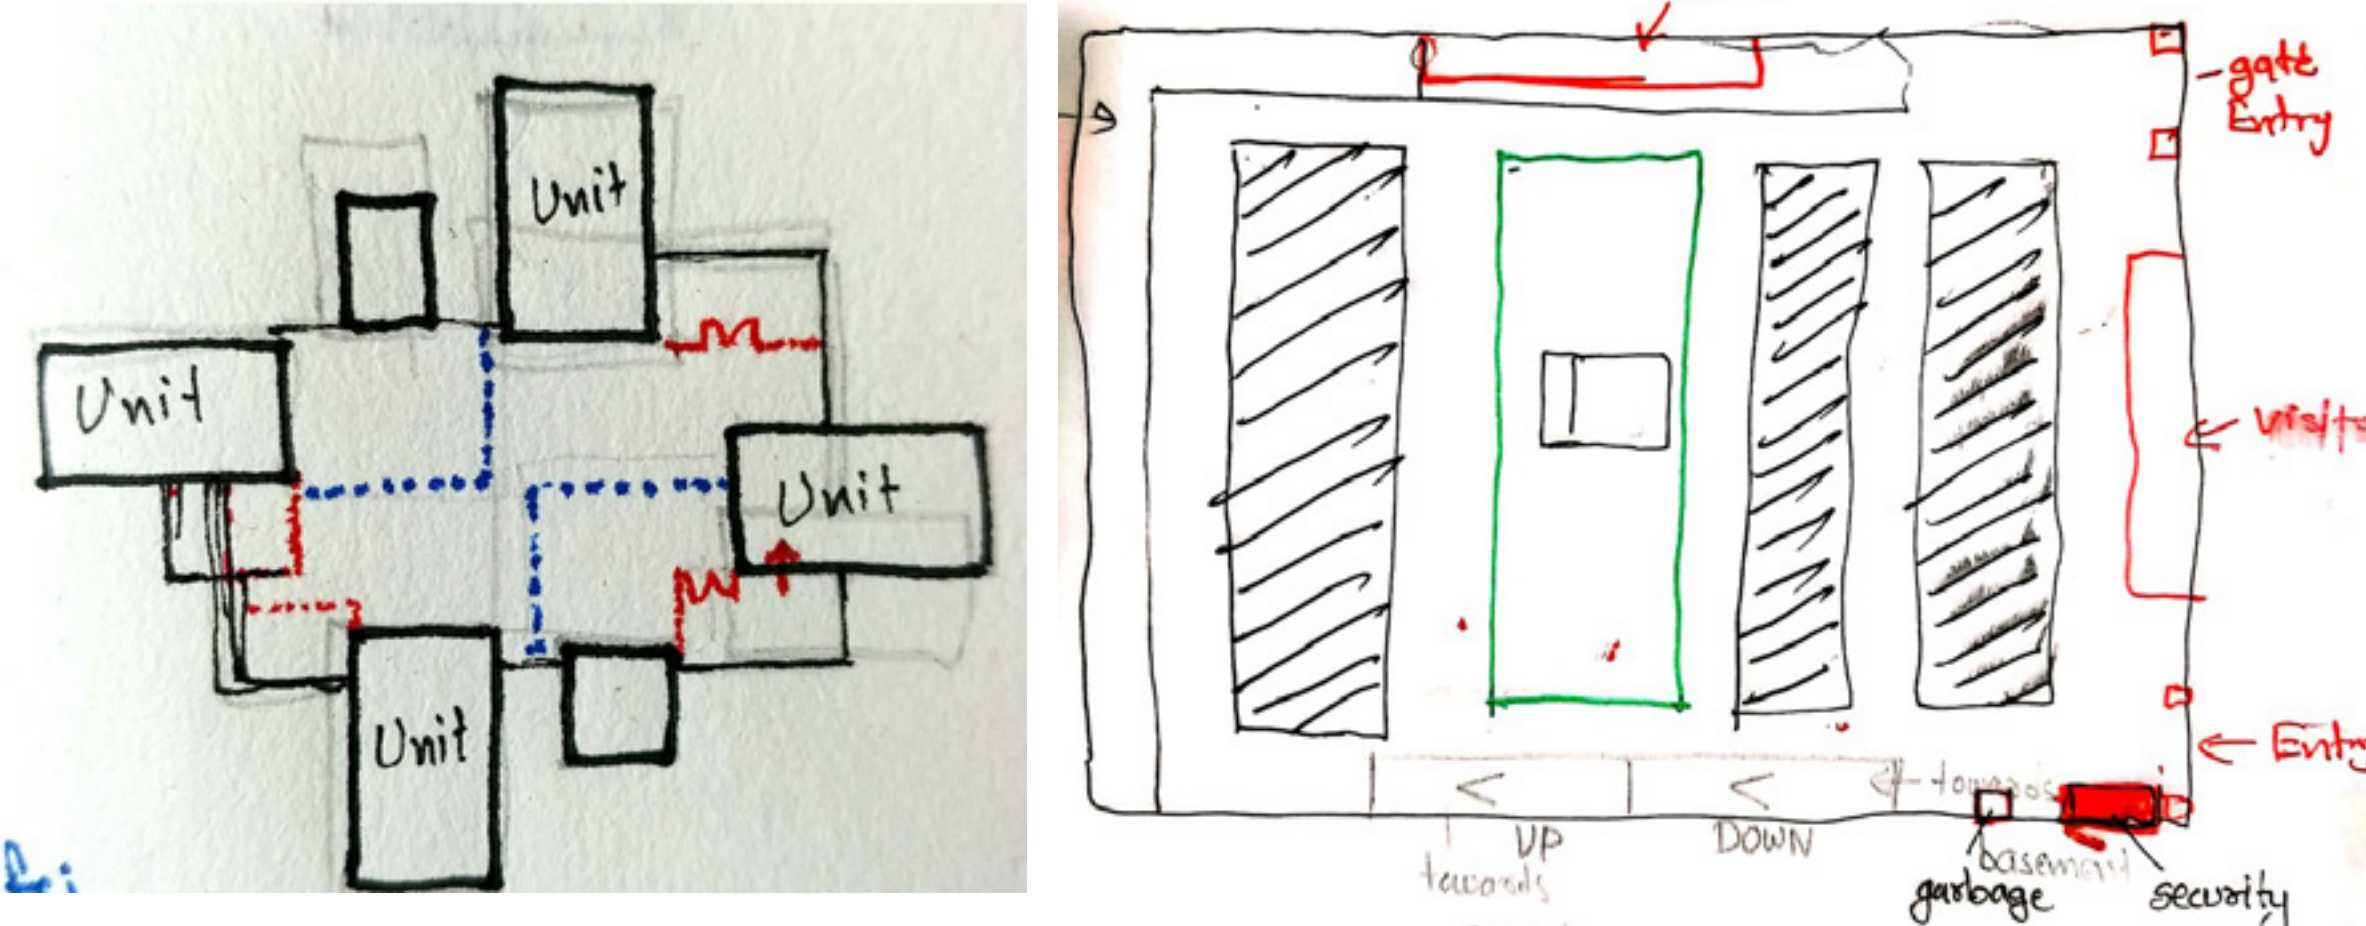 Unit
Unit
Unit
Unit
gate
Entry
UP
DOWN
towards
towards
basement
garbage
security